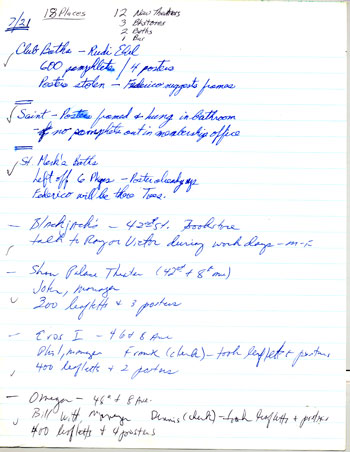 7/21 18 Places 12 New Theaters
3 Bkstores
2 Baths
1 Bar
Club Baths - Rudi
600 pamphlets / 4 posters
Posters stolen - Federico suggests frames
Saint - Posters framed & hung in bathroom
- if no pamphlets out in membership office
St. Mark's Baths
Left off 6 - Poster already up
Federico will be there Tues.
- Blackjack's - 42nd St. Bookstore
talk to Ray or Victor during work days - M-F
- Show Palace Theater (42nd & 8th Ave)
John, manager
200 leaflets & 3 posters
- Eros I - 46 & 8 Ave
Phil, manager Frank (clerk) - took leaflets & posters
400 leaflets & 2 posters
- Omega - 46th & 8 Ave.
Bill Witt, Manager Dennis (clerk) - took leaflets & posters
400 leaflets & 4 posters